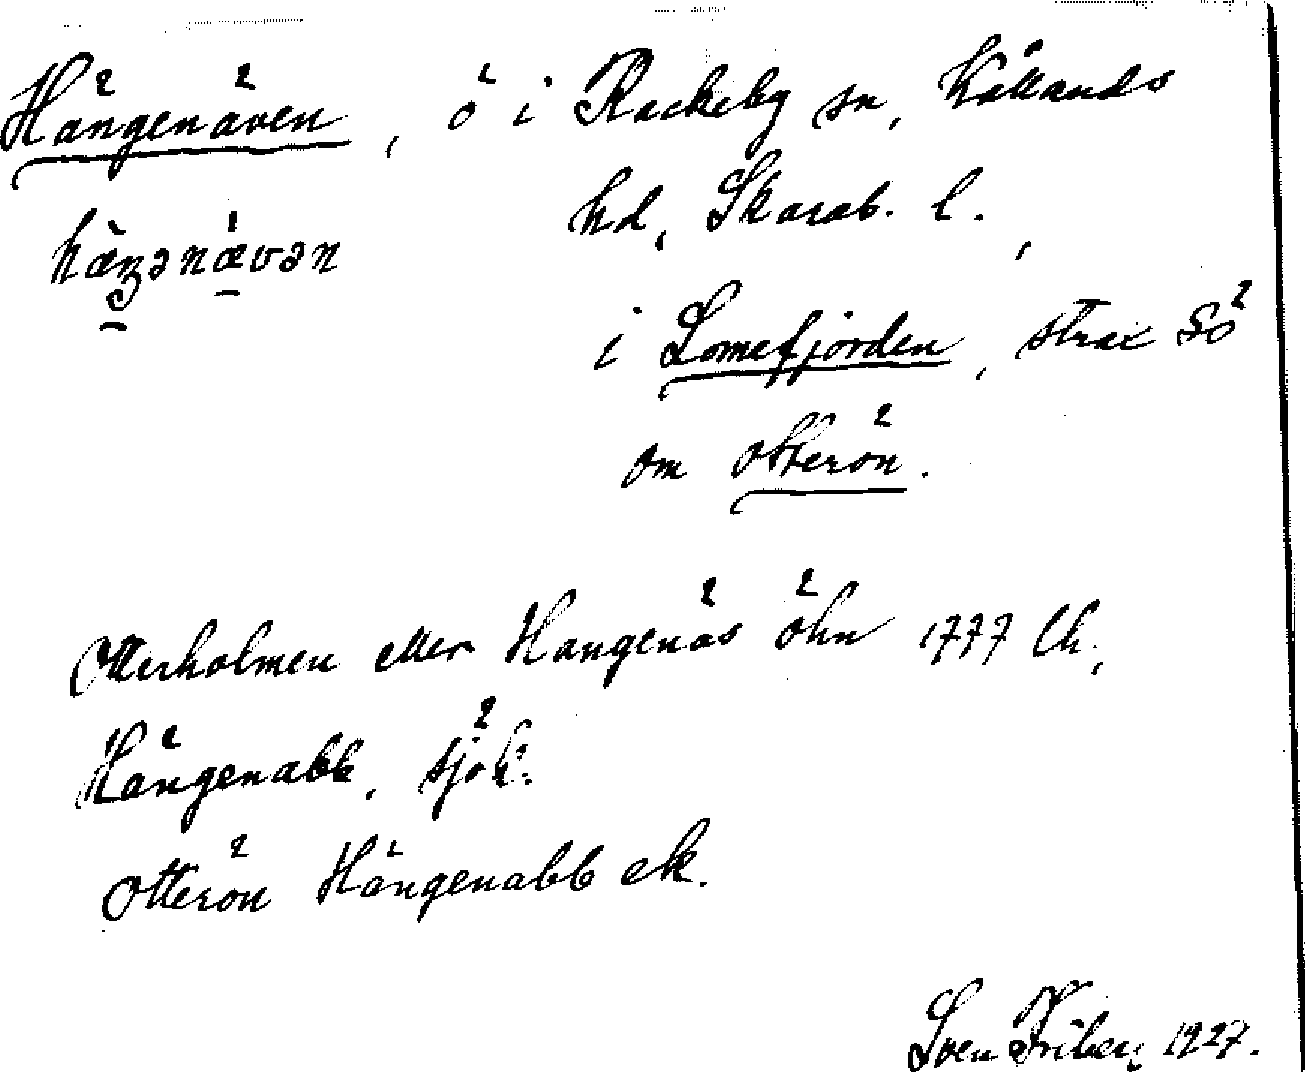 Hängenäven, ö i Rackeby sn, Kållands
hd, Skarab. l.,
hæŋənævən
i Lomefjorden, strax SÖ
om Otterön.
Otterholmen eller Hangenäs öhn 1777 Ch.,
Hängenabb, sjök.
Otterön Hängenabb ek.
Sven Friberg 1927.